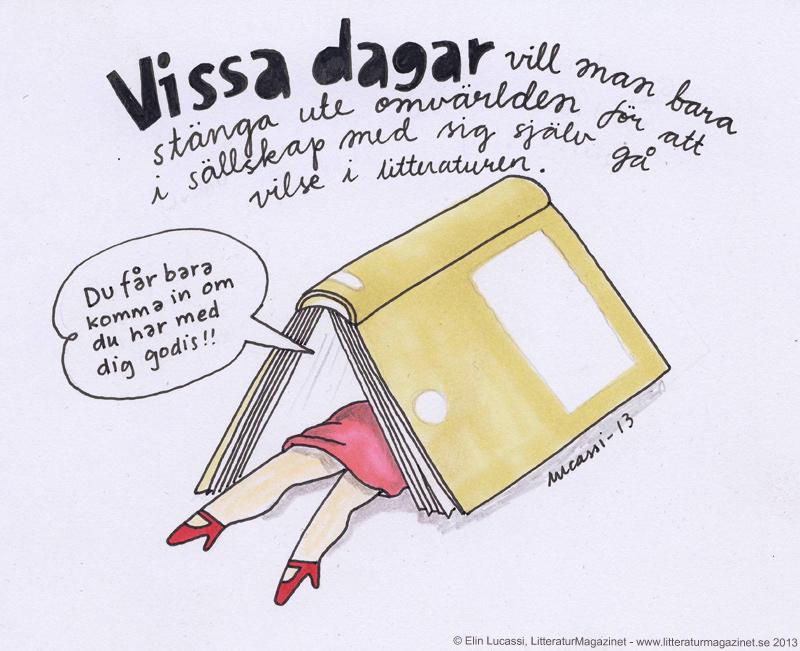 Vissa dagar vill man bara
stänga ute omvärlden för att
i sällskap med sig själv gå
vilse i litteraturen.
Du får bara
komma in om
du har med
dig godis!!
lucassi-13
© Elin Lucassi, LitteraturMagazinet - www.litteraturmagazinet.se 2013